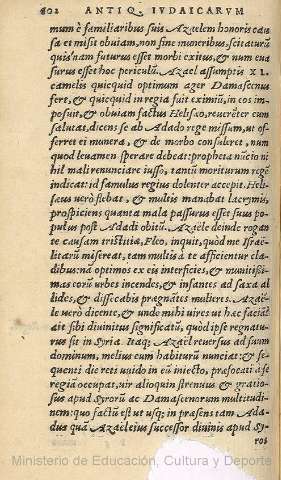 602 ANTIQ. IVDAICARVM
num è familiaribus suis Azaelem honoris cau
sa et misit obuiam, non sine muneribus, scitaturũ
quis'nam futurus esset morbi exitus, & num eua
surus esset hoc periculũ. Azael assumptis XL.
camelis quicquid optimum ager Damascenus
fert, & quicquid in regia fuit eximiũ, in eos im
posuit, & obuiam factus Helisæo, reuerẽter eum
salutat, dicens se ab Adado rege missum, ut of-
ferret ei munera, & de morbo consuleret, num
quod leuamen sperare debeat: propheta nũcio ni
hil mali renunciare iusso, tantũ moriturum regẽ
indicat: id famulus regius dolenter accepit. Heli-
sæus uerò flebat, & multis manabat lacrymis,
prospiciens quanta mala passurus esset suus po-
pulus post Adadi obitũ. Azaële deinde rogan
te causam tristitiæ, Fleo, inquit, quòd me Israë-
litarũ misereat, tam multis à te afficientur cla-
dibus: nã optimos ex eis interficies, & munitissi-
mas eorũ urbes incendes, & infantes ad saxa al
lides, & dissecabis prægnãtes mulieres. Azaë-
le uerò dicente, & unde mihi uires ut hæc faciã?
ait sibi diuinitus significatũ, quòd ipse regnatu-
rus sit in Syria. Itaq; Azaël reuersus ad suum
dominum, melius eum habiturũ nunciat: & se-
quenti die reti uuido in eũ iniecto, præfocati ipse
regiã occupat, uir alioquin strenuus & gratio-
sus apud Syrorũ ac Damascenorum multitudi-
nem: quo factũ est ut usq; in præsens tam Ada-
dus quã Azaeleius successor diuinis apud Sy-
ros
Ministerio de Educación, Cultura y Deporte